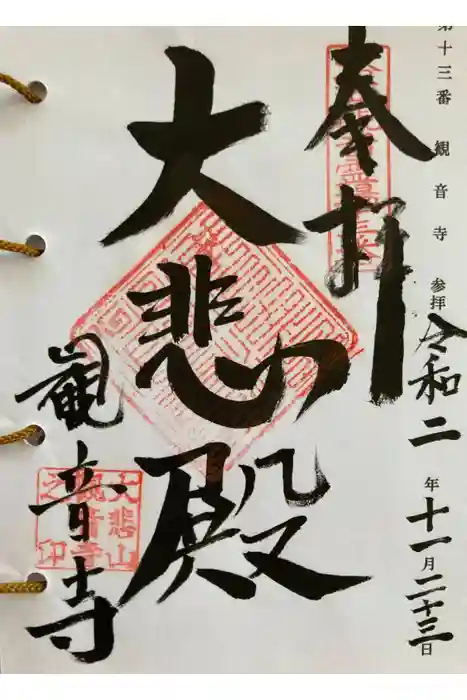 第十三番 観音寺 参拝 令和二年十一月二十三日
奉拝
大悲殿
観音寺
大悲山
観音寺
之印